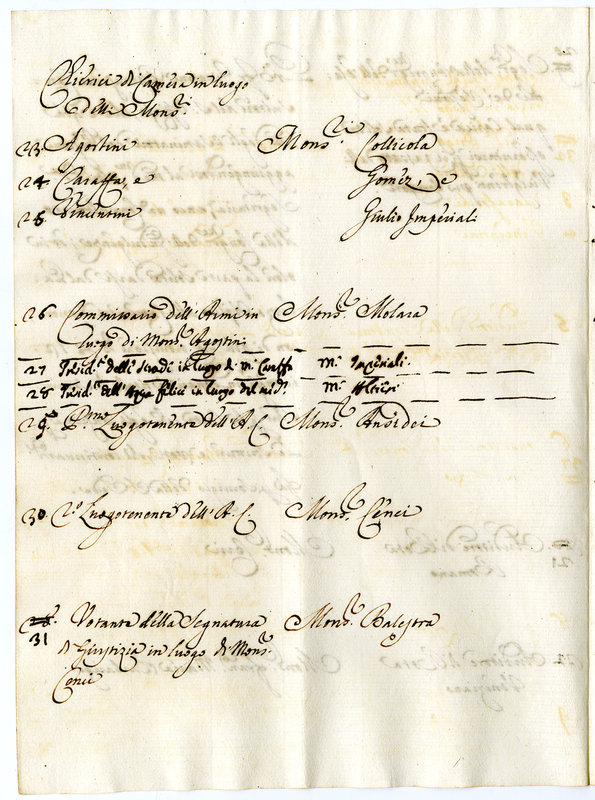 Chierici di Camera in luogo
delli Mons.ri
23. Agostini Mons.ri Collicola
24. Caraffa, e Gomez, e
25. Vincentini Giulio Imperiali
26. Commissario dell'Armi in Mons.r Molara
luogo di Mons.r Agostini
27 Presid.te delle Strade in luogo di M.r Caraffa M.r Imperiali.
28 Presid.te dell' Acqa felice in luogo del med.o M.r Altieri
29 P.mo Luogotenente dell'A. C. Mons.r Ansidei
30. 2.o Luogotenente dell'A. C. Mons.r Cenci
31 Votante della Segnatura Mons.r Balestra
di Giustizia in luogo di Mons.r
Cenci